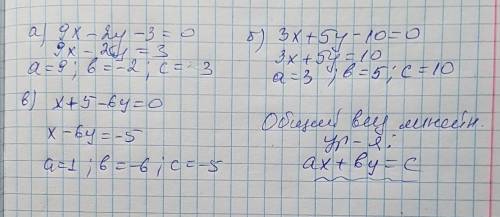 а) 9x - 2y - 3 = 0
9x - 2y = 3
a = 9 ; b = -2 ; c = 3
б) 3x + 5y - 10 = 0
3x + 5y = 10
a = 3 ; b = 5 ; c = 10
в) x + 5 - 6y = 0
x - 6y = -5
a = 1 ; b = -6 ; c = -5
Общий вид линейн.
ур-я:
ax + by = c